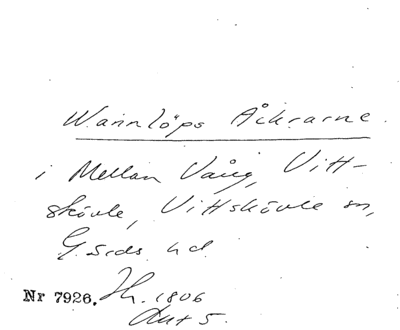 Wannlöps Åckrarne.
i Mellan Vång, Vitt-
skövle, Vittskövle sn,
G:rds hd.
Nr 7926. Jh. 1806
Akt 5.